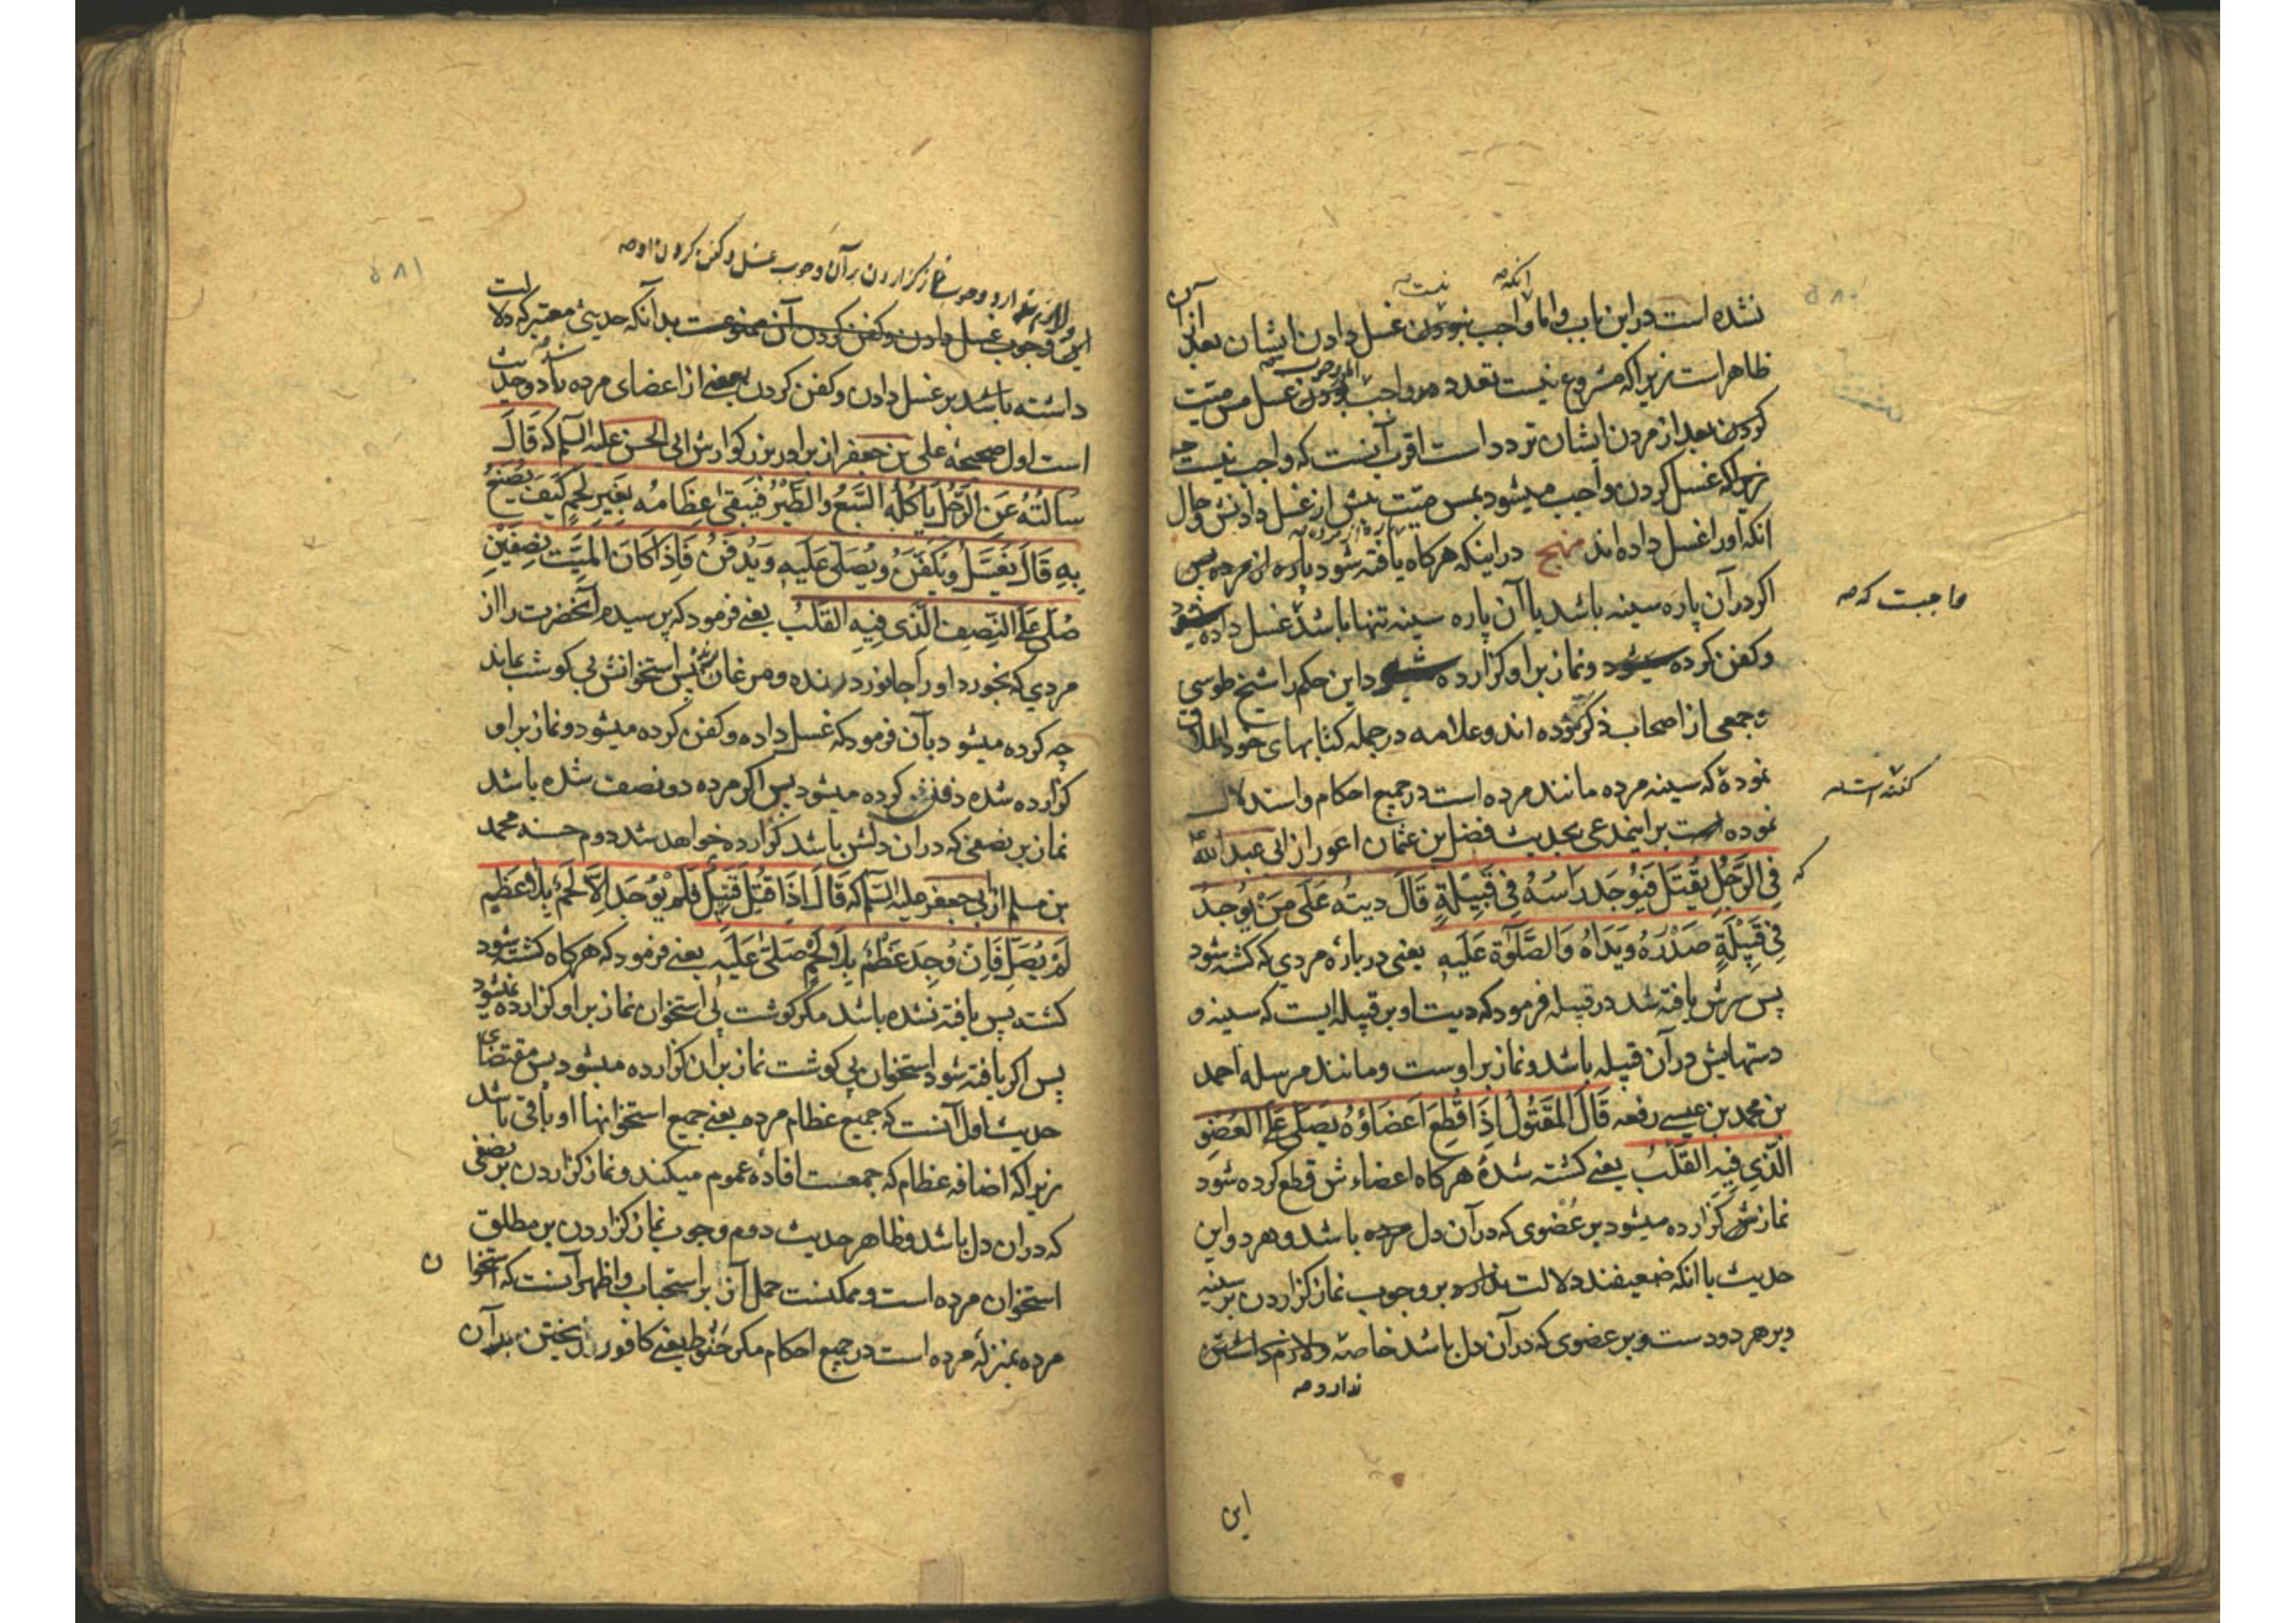 انکه صه نیست صه
نشده است در این باب و اما واجب نبودن غسل دادن ایشان بعد از آن
ظاهر است زیرا که مشروع نیست تعدد و در واجب بودن غسل مس میت
کردن بعد از مردن ایشان تردد است اقرب آنست که واجب نیست چه
زیرا که غسل کردن واجب میشود بمس میت پیش از غسل دادنش و حال
انکه او را غسل داده اند منهج در اینکه هرکاه یافته شود پاره از مرده پس
اکر در آن پاره سینه باشد یا آن پاره سینه تنها باشد غسل داده میشود
واجبست که صه
وکفن کرده میشود ونماز بر او کزارده میشود و این حکم را شیخ طوسی
وجمعی از اصحاب ذکر نموده اند وعلامه در جمله کتابهای خود اطلاق
نموده که سینه مرده مانند مرده است در جمیع احکام واستدلال
نموده است بر اینمدعی بحدیث فضل بن عثمان اعور از ابی عبد الله
که
فِی الرَّجُلِ یُقْتَلُ فَیُوجَدُ رَاسُهُ فِی قَبِیلَةٍ قَالَ دِیَتُهُ عَلَی مَنْ یُوجَدُ
فِی قَبِیلَةٍ صَدْرُهُ وَیَدَاهُ وَالصَّلٰوةُ عَلَیهِ یعنی در باره مردی که کشته شود
پس سرش یافته شد در قبیله فرمود که دیت او بر قبیله ایست که سینه و
دستهایش در آن قبیله باشد ونماز بر اوست ومانند مرسله احمد
بن محمد بن عیسی رفعه قَالَ المَقْتُولُ اِذَا قُطِعَ اَعضَاؤُهُ یُصَلّی عَلَی العُضوِ
الَّذِی فِیهِ القَلْبُ یعنی کشته شده هرکاه اعضاء ش قطع کرده شود
نمازش کزارده میشود بر عضوی که در آن دل مرده باشد و هر دو این
حدیث با انکه ضعیفند دلالت ندارد بر وجوب نماز کزاردن بر سینه
و بر هر دو دست و بر عضوی که در آن دل باشد خاصّه ولازم داشتن
ندارد صه
این
وجوب نماز کزاردن بر آن وجوب غسل وکفن کردن او صه
این وجوب غسل دادن وکفن کردن آن ممنوعست بدآنکه حدیثی معتبر که دلالت
داشته باشد بر غسل دادن وکفن کردن بعضی از اعضای مرده دو حدیث
است اول صحیحه علی بن جعفر از برادر بزرکوارش ابی الحسن علیه السلم که قَالَ
سَالتُهُ عَنِ الرَّجُلِ یَاکُلُهُ السَّبُعُ وَالطَّیْرُ فَیَبْقیٰ عِظَامُهُ بِغَیرِ لَحمٍ کَیفَ یُصْنَعُ
بِهِ قَالَ یُغَسَّلُ وَیُکَفَّنُ وَیُصَلّی عَلَیهِ وَیُدفَنُ فَاِذَا کَانَ المَیِّت نِصفَیْنِ
صُلّیَ عَلَی النِّصفِ الَّذی فِیهِ القَلبُ یعنی فرمود که پرسیدم آنحضرت را از
مردی که بخورد او را جانور درنده و مرغان پس استخوانش بی کوشت بماند
چه کرده میشود بآن فرمود که غسل داده وکفن کرده میشود ونماز بر او
کزارده شده دفنش کرده میشود پس اکر مرده دو نصف شده باشد
نماز بر نصفی که در ان دلش باشد کزارده خواهد شد دوم حسنه محمد
بن مسلم از ابی جعفر علیه السلم که قَالَ اِذَا قُتِلَ قَتِیلٌ فَلَمْ یُوجَد اِلّا لَحمٌ بِلَا عَظمٍ
لَمْ یُصَلَّ فَاِن وُجِدَ عَظمٌ بِلَا لَحْمٍ صُلّیَ عَلَیهِ یعنی فرمود که هرکاه کشته شود
کشته پس یافته نشده باشد مکر کوشت بی استخوان نماز بر او کزارده نمیشود
پس اکر یافته شود استخوان بی کوشت نماز بر آن کزارده میشود پس مقتضای
حدیث اول آنست که جمیع عظام مرده یعنی جمیع استخوانها او باقی باشد
زیرا که اضافه عظام که جمعست افادۀ عموم میکند ونماز کزاردن بر نصفی
که در ان دل باشد وظاهر حدیث دوم وجوب نماز کزاردن بر مطلق
استخوان مرده است وممکنست حمل آن بر استحباب واظهر آنست که استخوان
مرده بمنزله مرده است در جمیع احکام مکر حنوط یعنی کافور ریختن بر آن